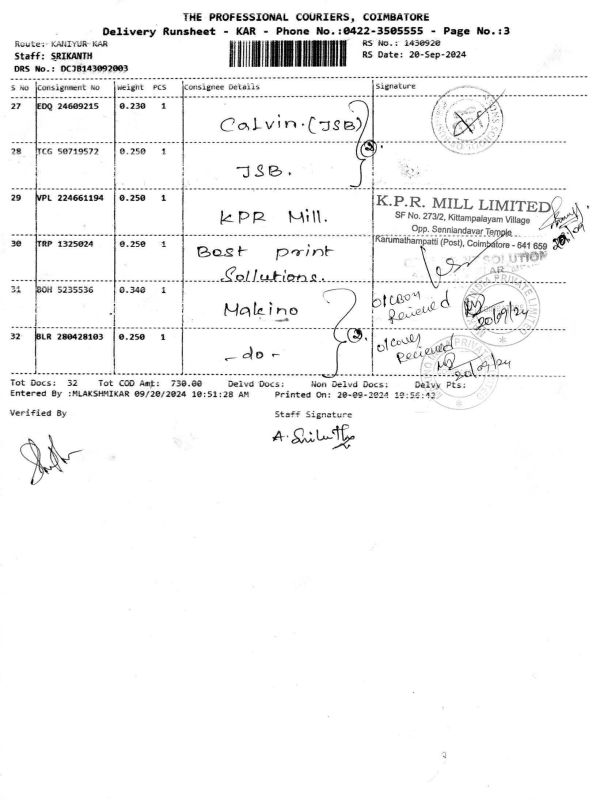 THE PROFESSIONAL COURIERS, COIMBATORE
Delivery Runsheet - KAR - Phone No.:0422-3505555 - Page No.:3
Route: KANIYUR KAR RS No.: 1430920
Staff: SRIKANTH RS Date: 20-Sep-2024
DRS No.: DCJB143092003
S No Consignment No Weight PCS Consignee Details Signature
27 EDQ 24609215 0.230 1
Calvin. (JSB)
28 TCG 50719572 0.250 1
JSB.
29 VPL 224661194 0.250 1
KPR Mill.
K.P.R. MILL LIMITED
SF No. 273/2, Kittampalayam Village
Opp. Senniandavar Temple
Karumathampatti (Post), Coimbatore - 641 659
30 TRP 1325024 0.250 1
Best print
Sollutions.
31 BOH 5235536 0.340 1
Makino
Recieved
20/09/24
32 BLR 280428103 0.250 1
- do -
Recieved
20/09/24
Tot Docs: 32 Tot COD Amt: 730.00 Delvd Docs: Non Delvd Docs: Delvy Pts:
Entered By :MLAKSHMIKAR 09/20/2024 10:51:28 AM Printed On: 20-09-2024 10:56:42
Verified By Staff Signature